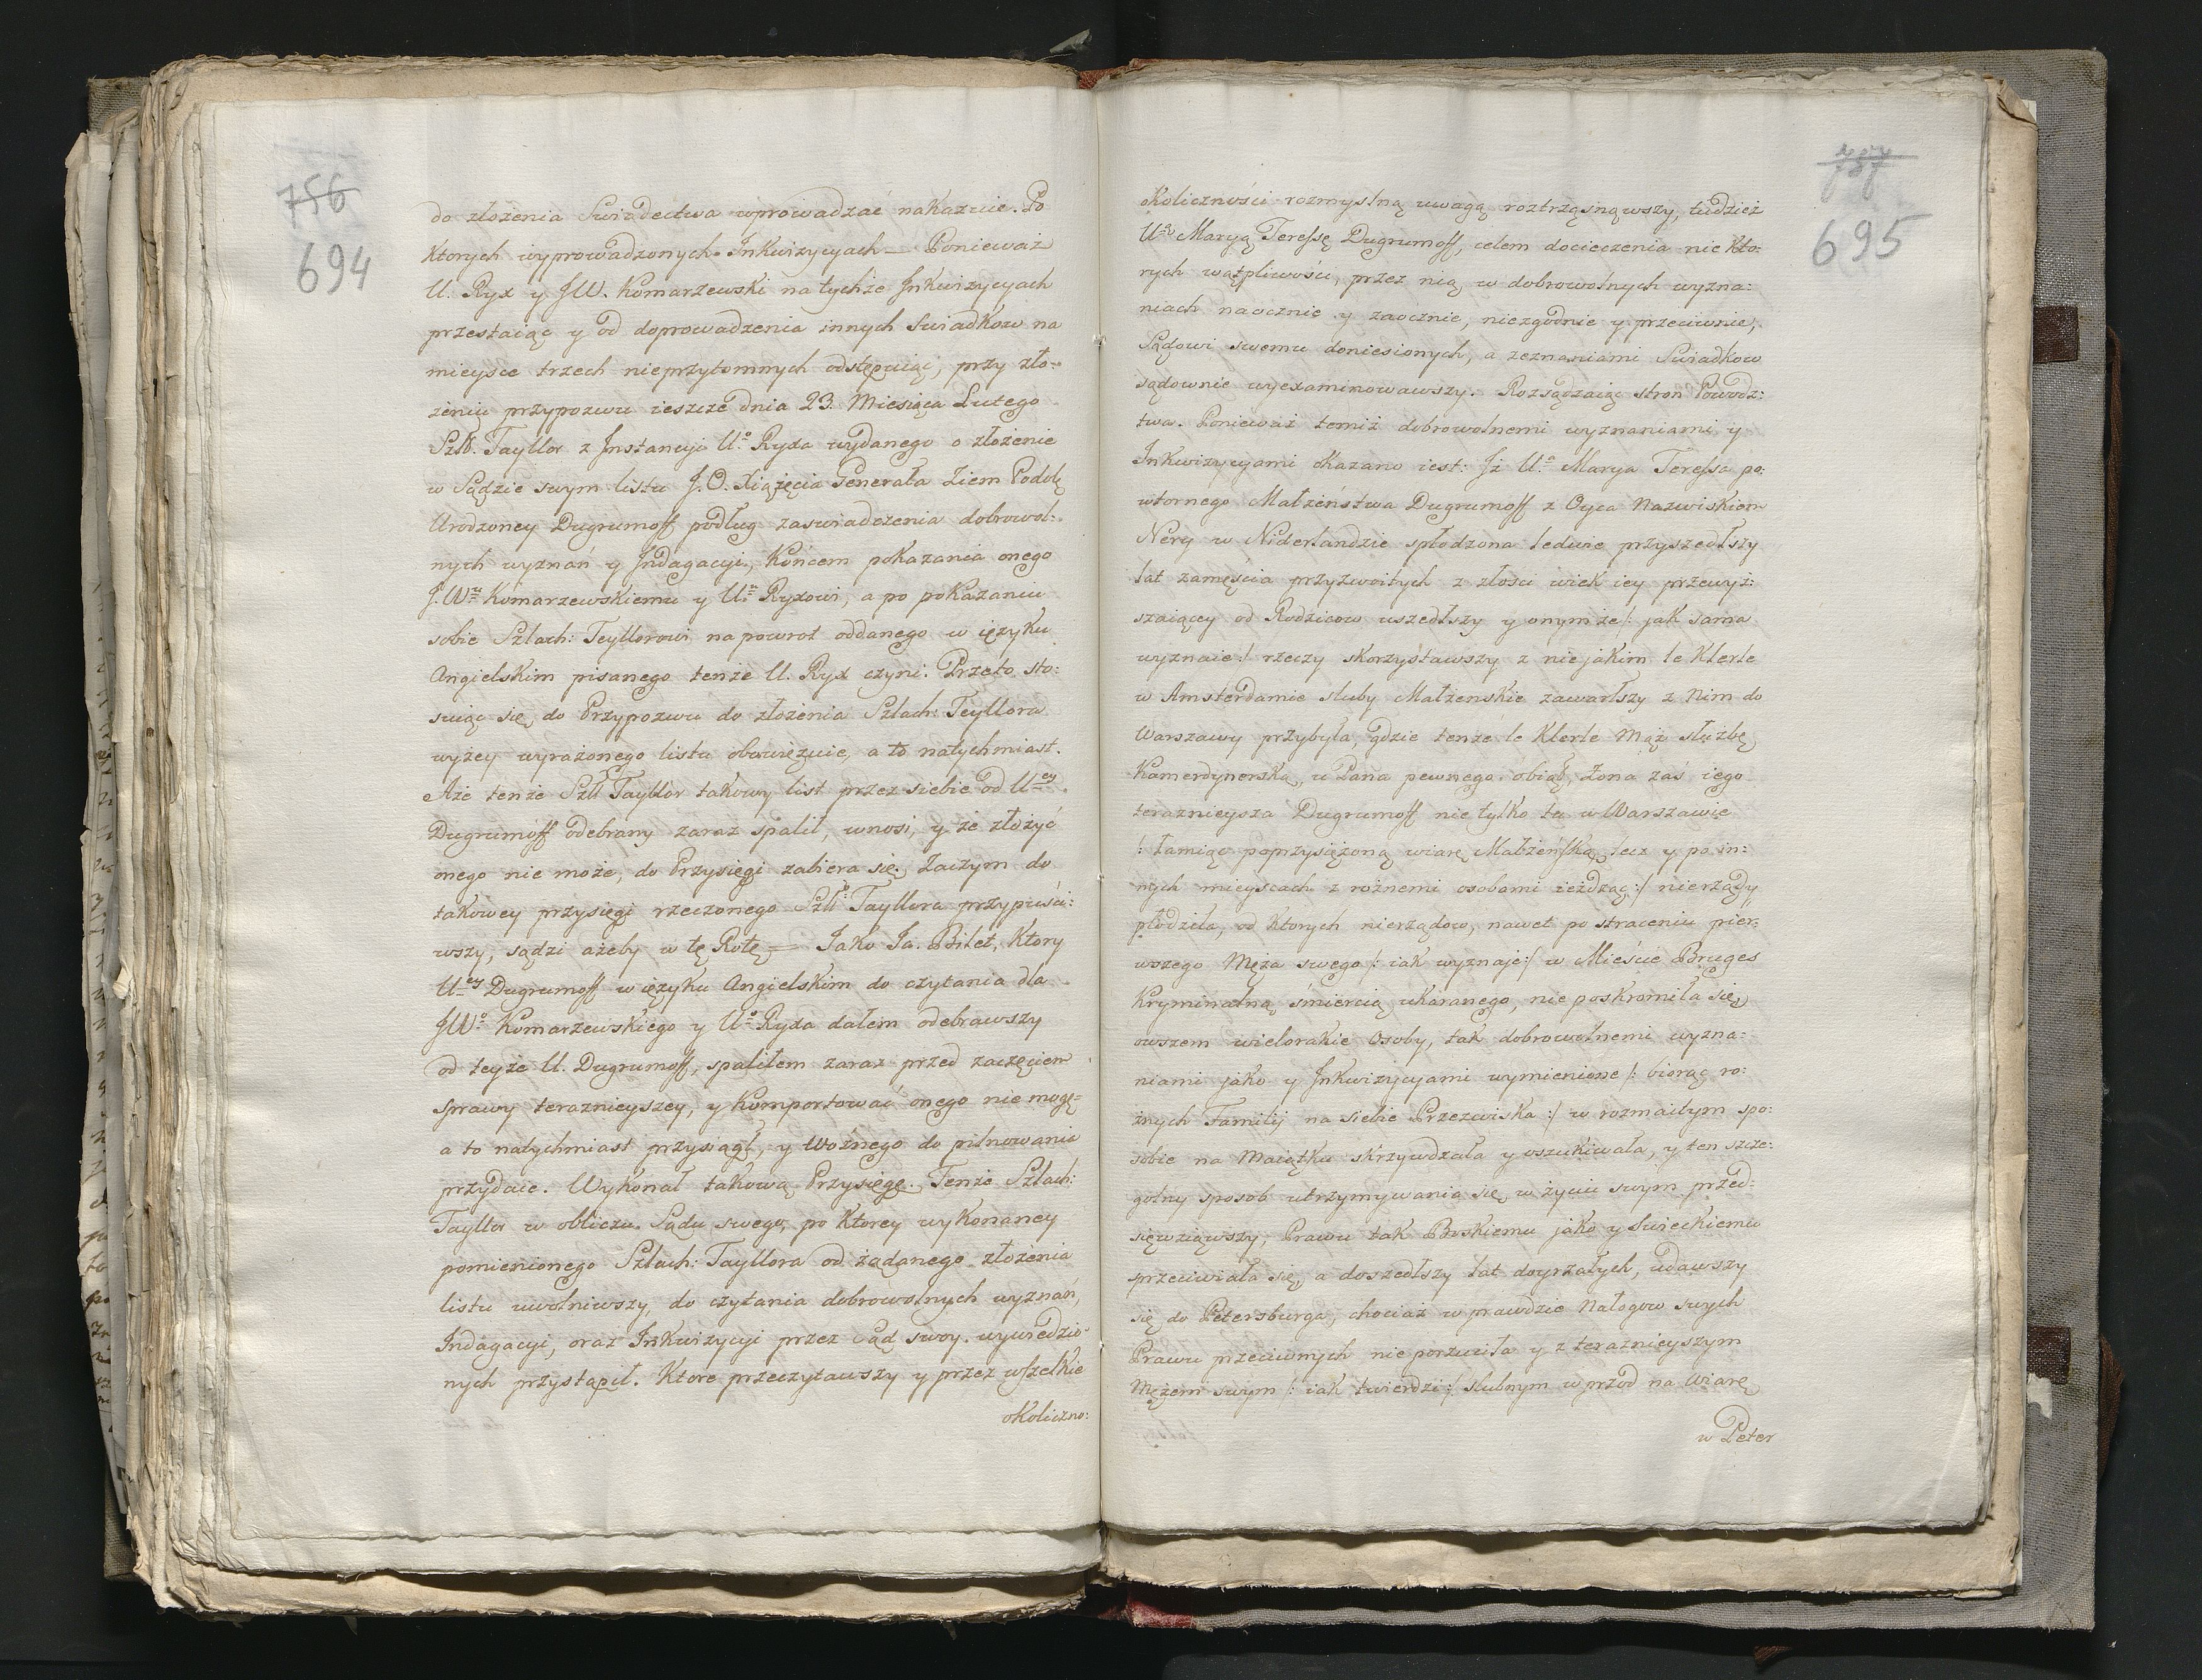 756
694
do złożenia Swiadectwa wprowadzać nakazuie. Po
ktorych wyprowadzonych Inkwizycyach — Ponieważ
U. Ryx y JW. Komarzewski na tychże Inkwizycyach
przestaiąc y od doprowadzenia innych swiadkow na
mieysce trzech nieprzytomnych odstępuiąc, przy zło:
żeniu przypozwu ieszcze dnia 23. Miesiąca Lutego
Szl. Tayllor z Instancyi Uº Ryxa wydanego o złożenie
w Sądzie swym listu J.O. Xiążęcia Generała Ziem Podol:
Urodzoney Dugrumoff podług zaswiadczenia dobrowol:
nych wyznań y Indagacyi, końcem pokazania onego
J.Wmu Komarzewskiemu y Umu Ryxowi, a po pokazaniu
sobie Szlach: Teyllorowi na powrot oddanego w ięzyku
Angielskim pisanego tenże U. Ryx czyni. Przeto sto:
suiąc się do Przypozwu do złożenia Szlach: Teyllora
wyżey wyrażonego listu obowięzuie, a to natychmiast.
Aże tenże Szl. Tayllor takowy list przez siebie od Uey
Dugrumoff odebrany zaraz spalił, wnosi, y że złożyć
onego nie może, do Przysięgi zabiera się. Zaczym do
takowey przysięgi rzeczonego Szl. Tayllora przypuści:
wszy, sądzi ażeby w tę Rotę — Jako Ja. Bilet, ktory
Uey Dugrumoff w ięzyku Angielskim do czytania dla
JWº Komarzewskiego y Uº Ryxa dałem odebrawszy
od teyże U. Dugrumoff, spaliłem zaraz przed zaczęciem
sprawy teraznieyszey, y komportować onego nie mogę=
a to natychmiast przysiągł, y Woźnego do pilnowania
przydaie. Wykonał takową Przysięgę. Tenże Szlach:
Tayllor w obliczu Sądu swego, po ktorey wykonaney
pomienionego Szlach: Tayllora od żądanego złożenia
listu uwolniwszy, do czytania dobrowolnych wyznań,
Indagacyi, oraz Inkwizycyi przez Sąd swoy wywiedzio:
nych przystąpił. Ktore przeczytawszy y przez wszelkie
okoliczno:
757
695
okoliczności rozmyslną uwagą roztrząsnąwszy, tudzież
Uą Maryą Teressę Dugrumoff, celem docieczenia nie kto:
rych wątpliwości, przez nią w dobrowolnych wyzna:
niach naocznie y zaocznie, niezgodnie y przeciwnie,
Sądowi swemu doniesionych, a zeznaniami Swiadkow
sądownie wyexaminowawszy. Rozsądzaiąc stron Powodz:
twa. Ponieważ temiż dobrowolnemi wyznaniami y
Inkwizycyami okazano iest: Iż Uª Marya Teressa po:
wtornego Małżeństwa Dugrumoff z Oyca Nazwiskiem
Nery w Niderlandzie spłodzona ledwie przyszedłszy
lat zamęścia przyzwoitych z złosci wiek iey przewyż:
szaiącey od Rodzicow uszedłszy y onymże /: jak sama
wyznaie :/ rzeczy skorzystawszy z niejakim le Klerle
w Amsterdamie sluby Małżenskie zawarłszy z Nim do
Warszawy przybyła, gdzie tenże le Klerle Mąż służbę
Kamerdynerską u Pana pewnego obiął, Żona zaś iego
teraznieysza Dugrumoff nie tylko tu w Warszawie
/: łamiąc poprzysiężoną wiarę Małżeńską, lecz y po in:
nych mieyscach z rożnemi osobami ieżdżąc :/ nierządy
płodziła, od ktorych nierządow, nawet po straceniu pier:
wszego Męża swego /: iak wyznaje :/ w Mieście Bruges
Kryminalną śmiercią ukaranego, nie poskromiła się
owszem wielorakie Osoby, tak dobrowolnemi wyzna:
niami jako y Inkwizycyami wymienione /: biorąc ro:
żnych Familij na siebie Przezwiska :/ w rozmaitym spo:
sobie na Maiątku skrzywdzała y oszukiwała, y ten szcze:
golny sposob utrzymywania się w życiu swym przed:
sięwziąwszy, Prawu tak Boskiemu jako y Swieckiemu
sprzeciwiała się, a doszedłszy lat doyrzałych, udawszy
się do Petersburga, chociaż w prawdzie Nałogow swych
Prawu przeciwnych nie porzuciła y z teraznieyszym
Mężem swym /: iak twierdzi :/ slubnym w przod na Wiarę
w Peter